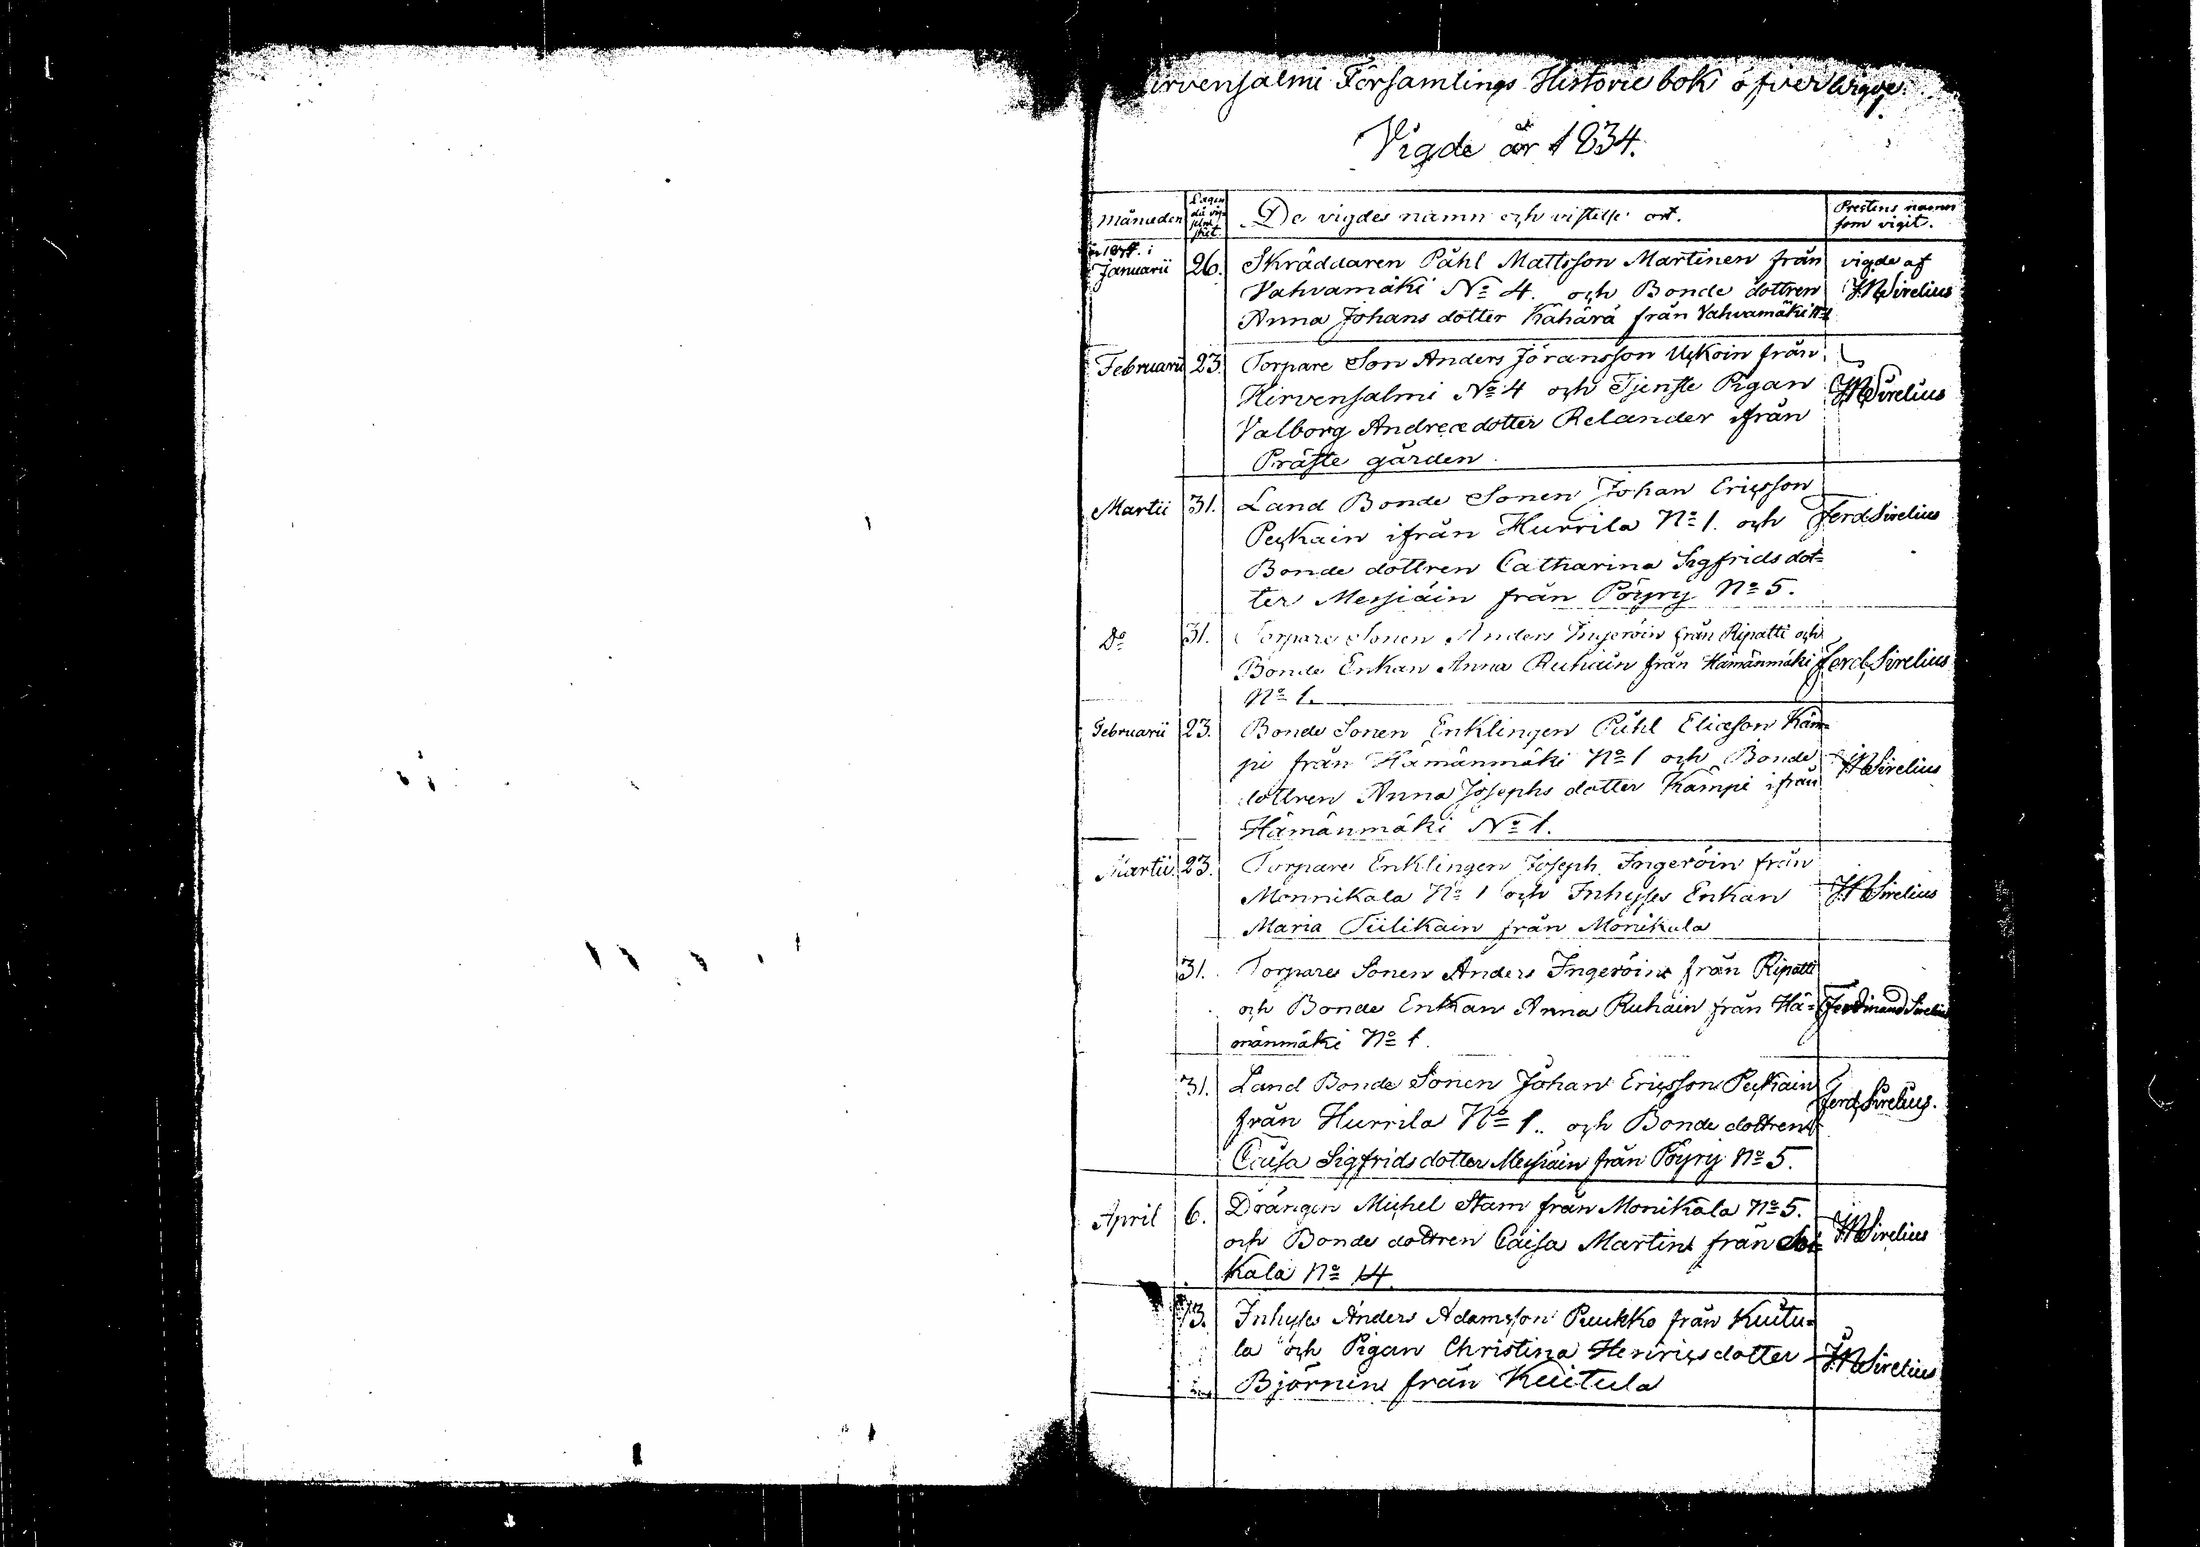 irvensalmi Församlings Historie bok öfver
Vigde år 1834.
Månaden
Dagen då vig- skiet.
De vigdes namn och vistelse ort.
Prestens namn som vigit.
Januarii 26. Skräddaren Påhl Mattsson Martinen från vigde af
Vahvamäki No 4. och Bonde dottren JNSirelius
Anna Johans dotter Kähärä från Vahvamäki
Februarii 23. Torpare Son Anders Jöransson från
Hirvensalmi No 4 och Tjenste Pigan JNSirelius
Valborg Andreædotter Relander ifrån
Präste gården.
Martii 31. Land Bonde Sonen Johan Ericsson
Peckain ifrån Hurrila No 1. och Ferd Sirelius
Bonde dottren Catharina Sigfrids dot=
ter Messiäin från Pöyry No 5.
Do 31. Torpare Sonen Anders Ingeröin från Ripatti och
Bonde Enkan Anna Ruhain från Hämänmäki Ferd Sirelius
No 1.
Februarii 23. Bonde Sonen Enklingen Påhl Eliæson Käm=
pi från Hämänmäki No 1 och Bonde JNSirelius
dottren Anna Josephs dotter Kämpi ifrån
Hämänmäki No 1.
Martii 23. Torpare Enklingen Joseph Ingeröin från
Monnikala No 1 och Inhyses Enkan JNSirelius
Maria Tiilikain från Monikala
31. Torpares Sonen Anders Ingeröin från Ripatti
och Bonde Enkan Anna Ruhain från Hä= Ferdinand Sirelius
mänmäki No 1.
31. Land Bonde Sonen Johan Ericsson Peckain
från Hurrila No 1. och Bonde dottren Ferd Sirelius.
Caisa Sigfrids dotter Messiäin från Pöyry No 5.
April 6. Drängen Michel Stam från Monikala No 5.
och Bonde dottren Caisa Martin från Soi= JNSirelius
kala No 14.
13. Inhyses Anders Adamsson Puukko från Kuitu=
la och Pigan Christina Henricsdotter JNSirelius
Björnin från Kuitula